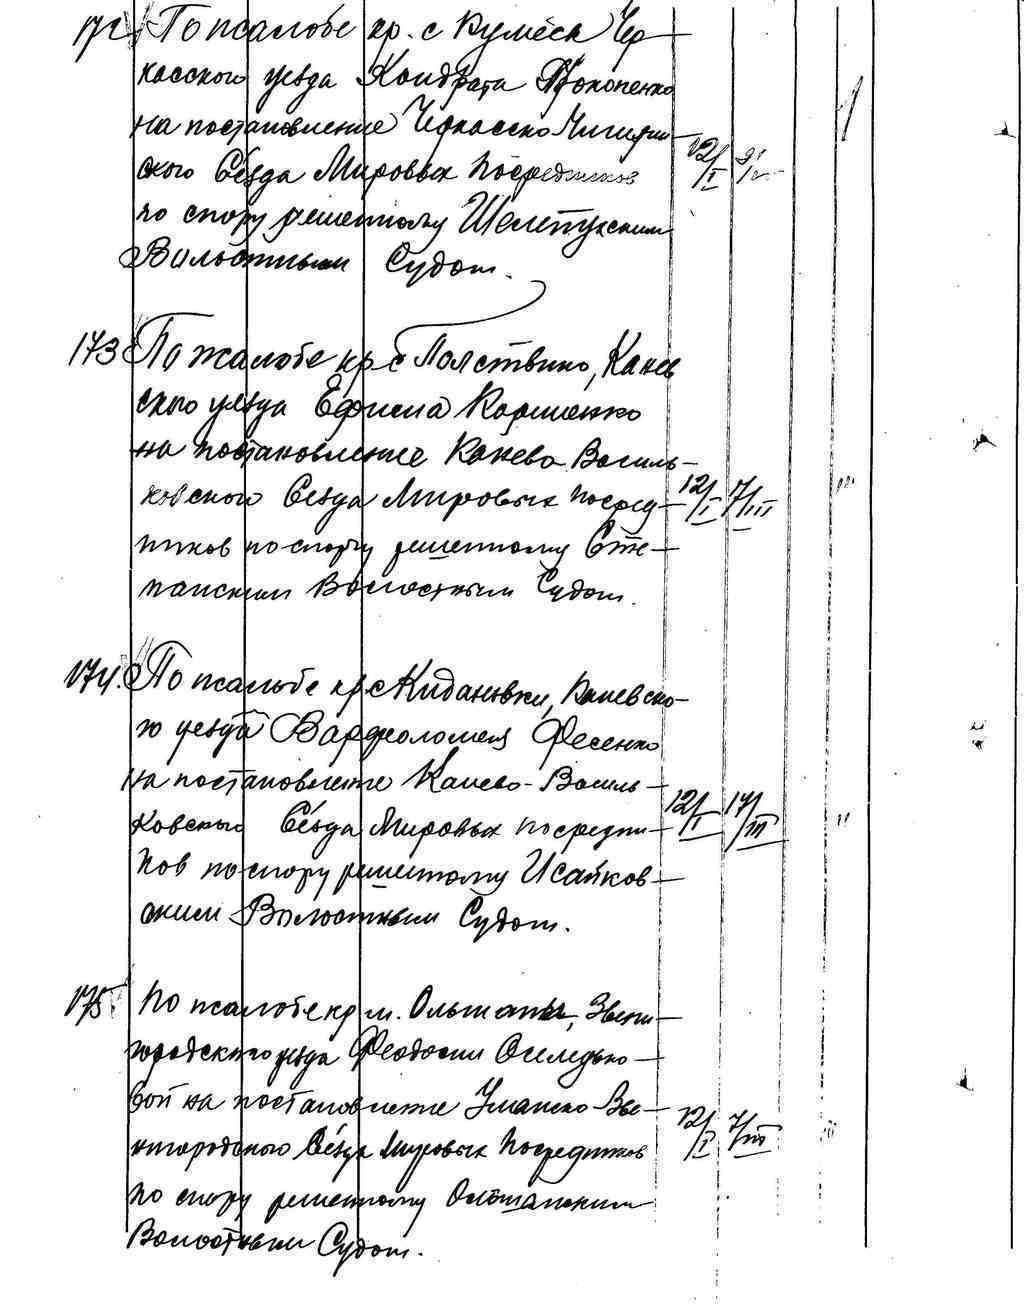 172 По жалобе кр. с Кумейск Чер-
касского уезда Кондрата Прокопенко
на постановление Черкасско Чигирин-
ского Съезда Мировых Посредников 12/I
по спору решенному Шелепухским
Волостным Судом.
173 По жалобе кр с Полствино, Канев
ского уезда Ефима Корниенко
на постановление Канево Василь-
ковского Съезда Мировых Посред- 12/I 17/III
ников по спору решенному Сте-
панским Волостным Судом.
174. По жалобе кр с Кидановки, Каневско-
го уезда Варфоломея Фесенко
на постановление Канево-Василь-
ковского Съезда Мировых посредни- 12/I 17/III "
ков по спору решенному Исайков-
ским Волостным Судом.
175 По жалобе кр м. Ольшаны, Звени-
городского уезда Феодосии Оселедько-
вой на постановление Уманско-Зве-
нигородского Съезда Мировых Посредников 12/I 7/III
по спору решенному Ольшанским
Волостным Судом.